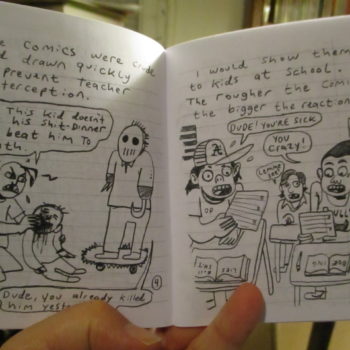 Comics were crude
drawn quickly
prevent teacher
terception.
This kid doesn't
his shit-dinner
beat him to
Dude, you already killed
him
4
I would show them
to kids at school.
The rougher the
the bigger the reaction
DUDE! YOU'RE SICK
YOU
CRAZY!
LEMME
SEE!